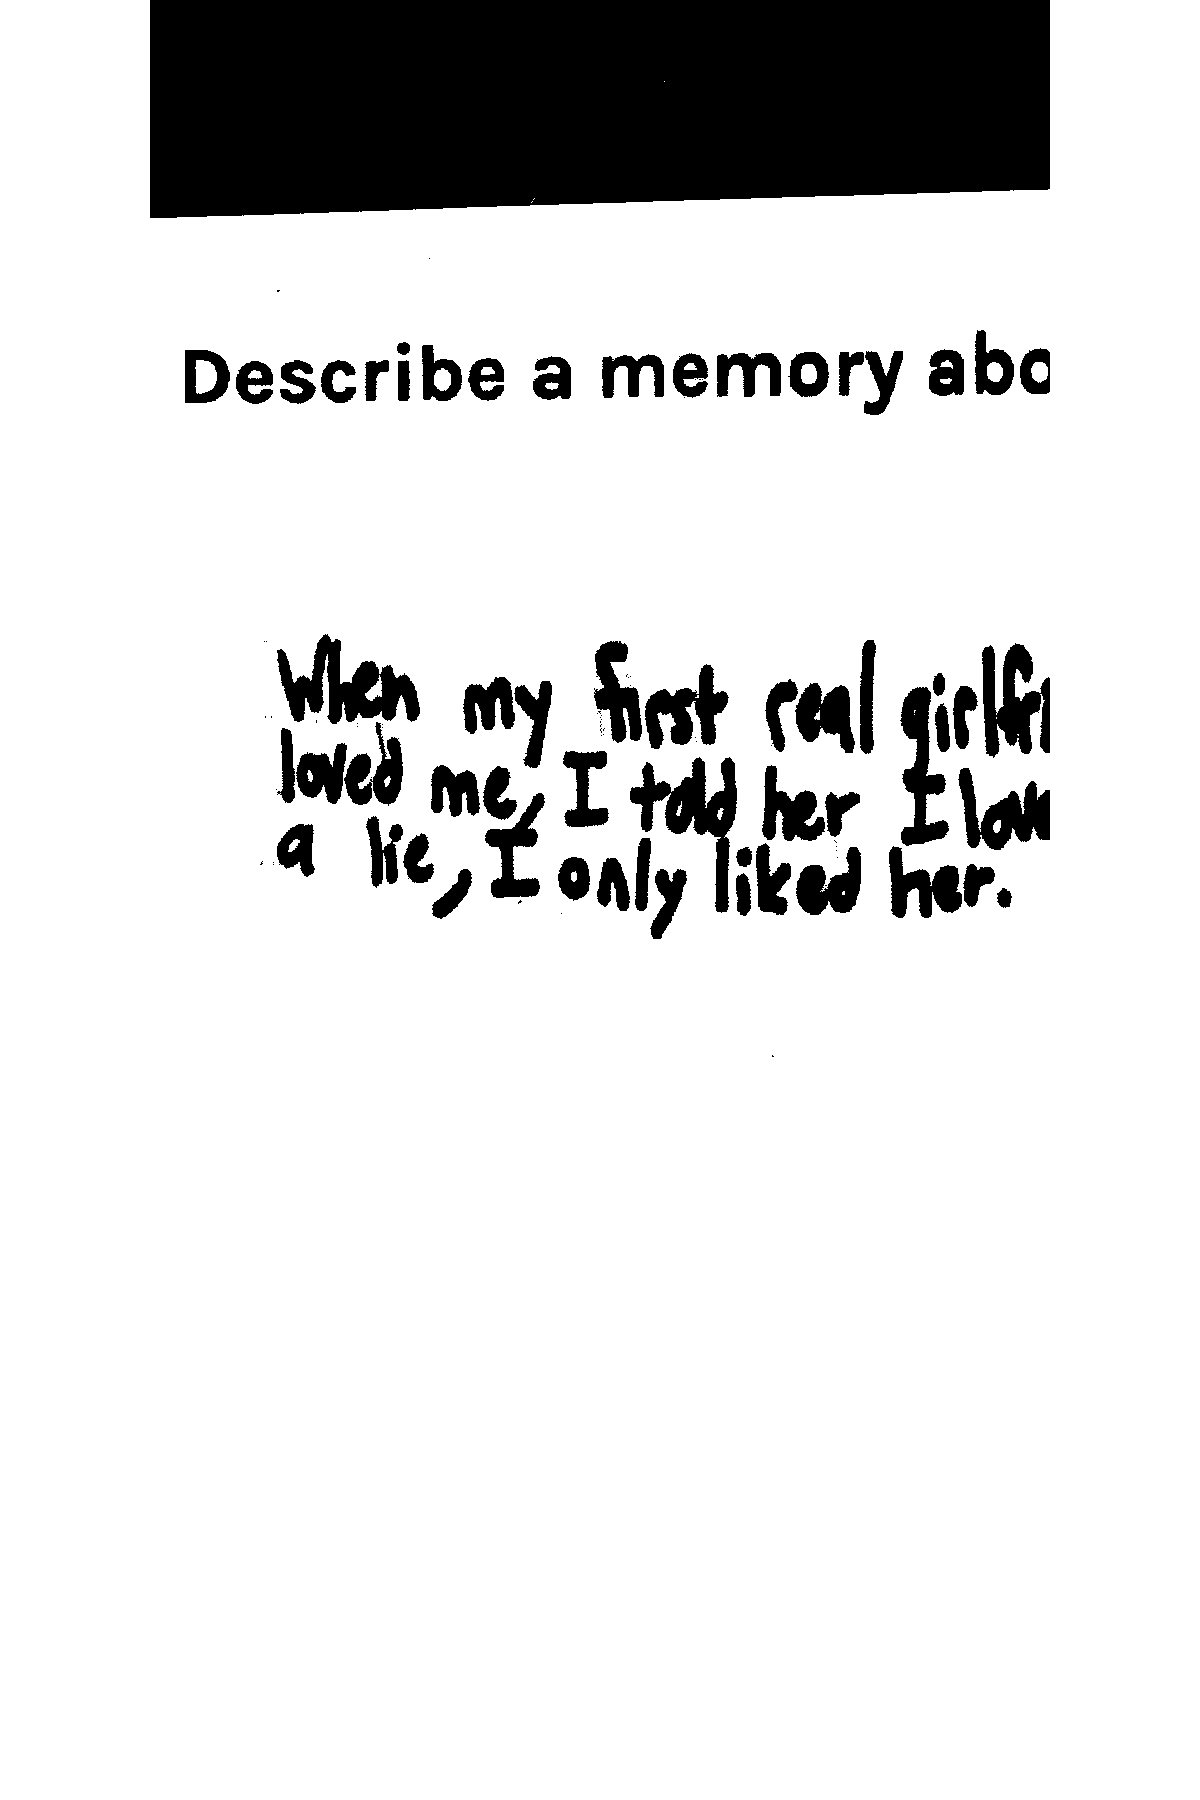 Describe a memory
When my first real
loved me, I told her I
a lie, I only liked her.